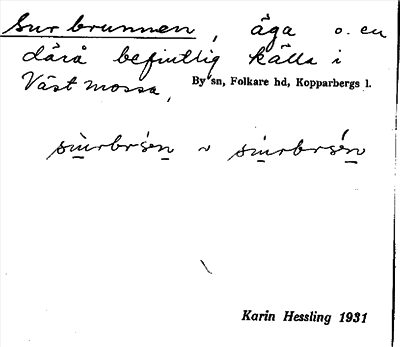 Surbrunnen, äga o. en
därå befintlig källa i
Västmossa, By sn, Folkare hd, Kopparbergs l.
Karin Hessling 1931